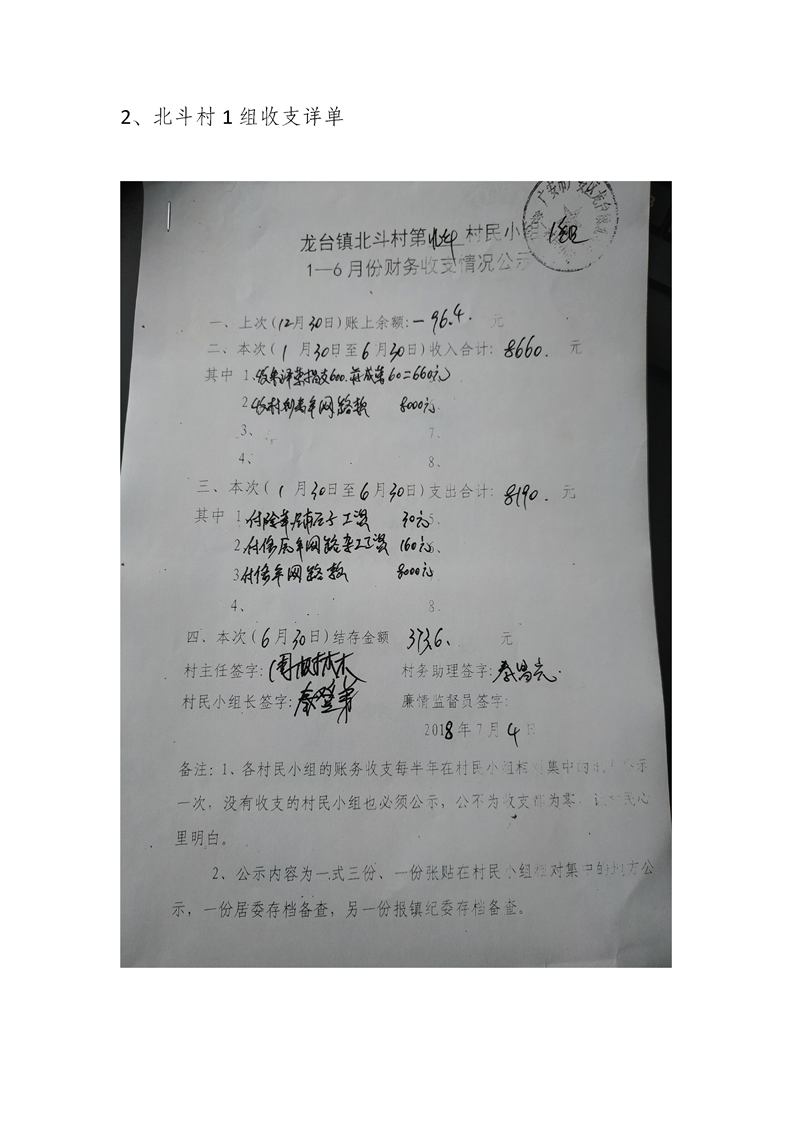 2、北斗村1组收支详单
龙台镇北斗村第北斗村民小组 1组
1—6月份财务收支情况公示
一、上次(12月30日)账上余额:-96.4. 元
二、本次(1月30日至6月30日)收入合计:8660. 元
其中 1、600. 60=660元)
2 网路款 8000元
3、 7、
4、 8、
三、本次(1月30日至6月30日)支出合计:8190. 元
其中 1付 工资 30元 5、
2付 网路 工资 160元
3付 网路款 8000元
4、 8、
四、本次(6月30日)结存金额 373.6、 元
村主任签字: 村务助理签字:秦昌
村民小组长签字:秦登 廉情监督员签字:
2018年7月4日
备注:1、各村民小组的账务收支每半年在村民小组相对集中的 公示
一次,没有收支的村民小组也必须公示,公不为收支都为零, 民心
里明白。
2、公示内容为一式三份、一份张贴在村民小组相对集中的地方公
示,一份居委存档备查,另一份报镇纪委存档备查。